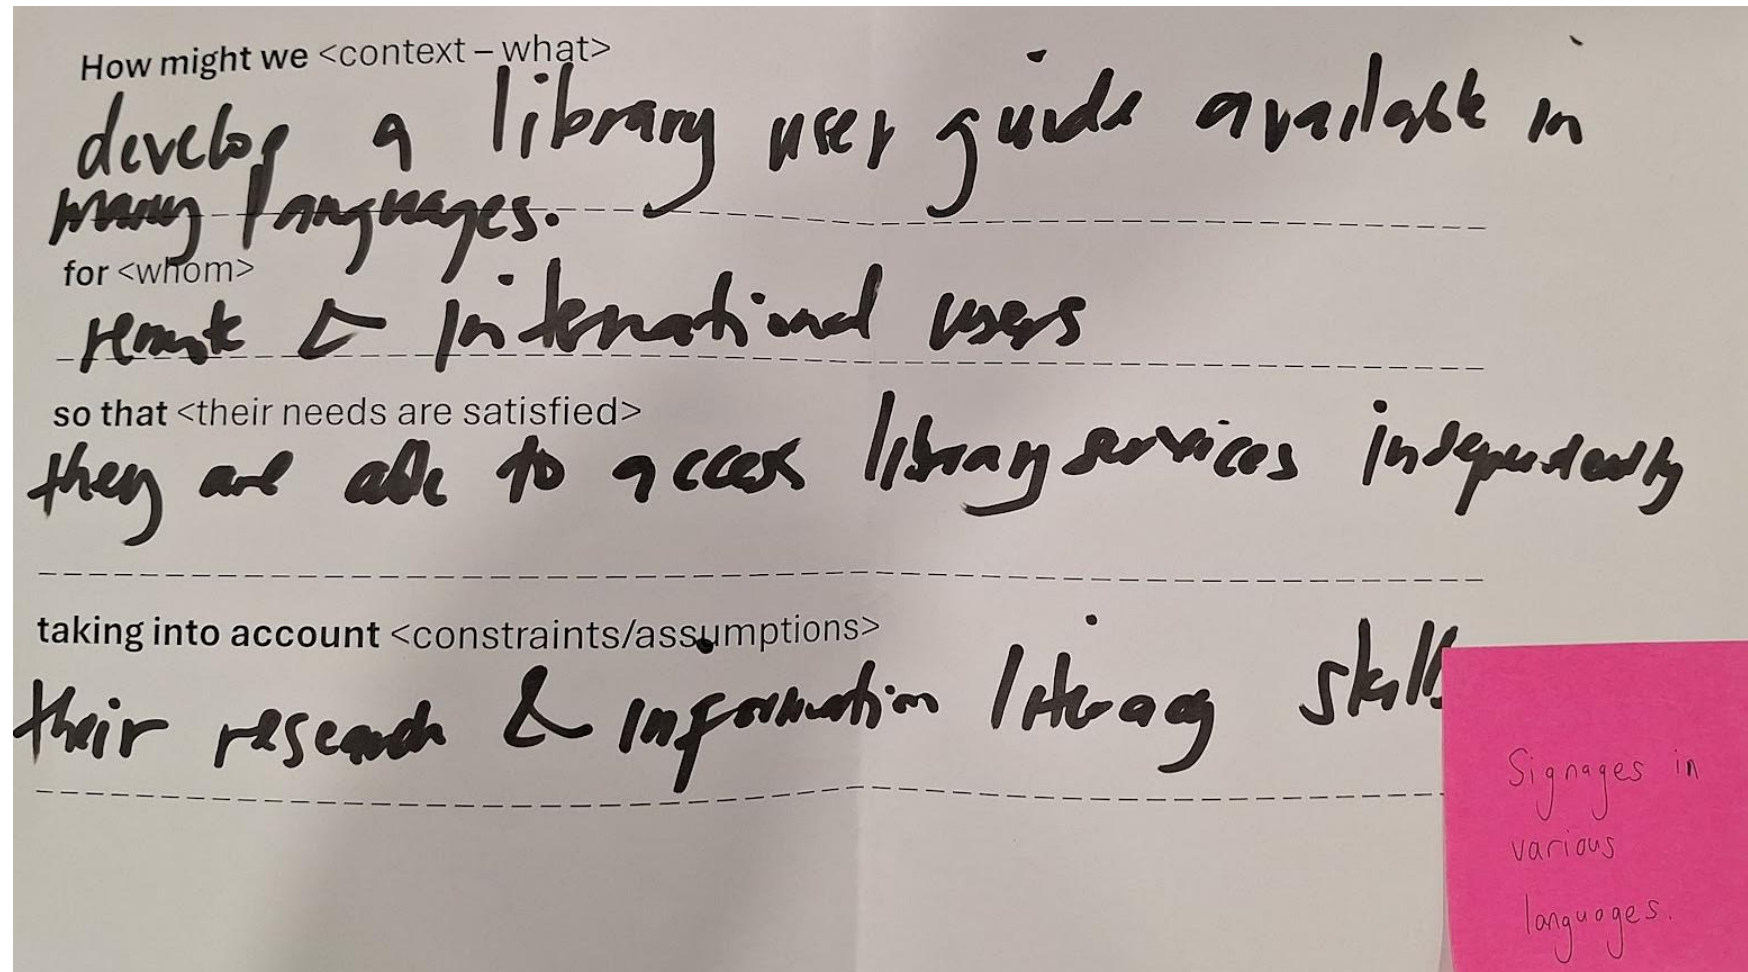 How might we <context – what>
develop a library user guide available in
many languages.
for <whom>
remote & international users
so that <their needs are satisfied>
they are able to access library services independently
taking into account <constraints/assumptions>
their research & information literacy skills
Signages in
various
languages.